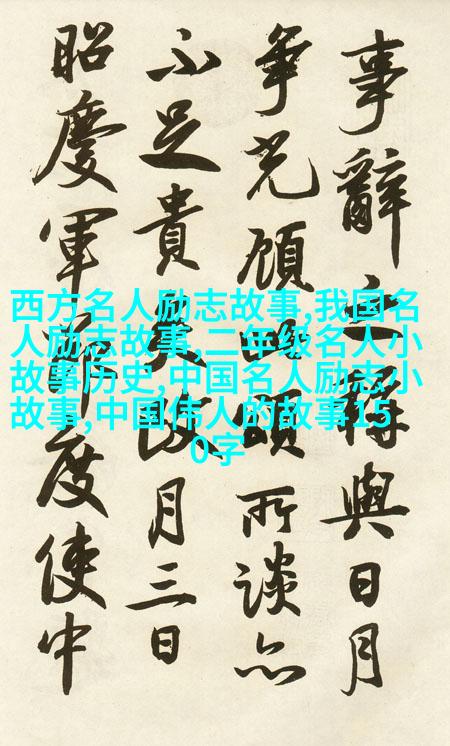 事辭之將與日月
争光顧頌所談亦
不足貴矣月三日
昭慶軍節度使中
西方名人励志故事,我国名
人励志故事,二年级名人小
故事历史,中国名人励志小
故事,中国伟人的故事15
0字